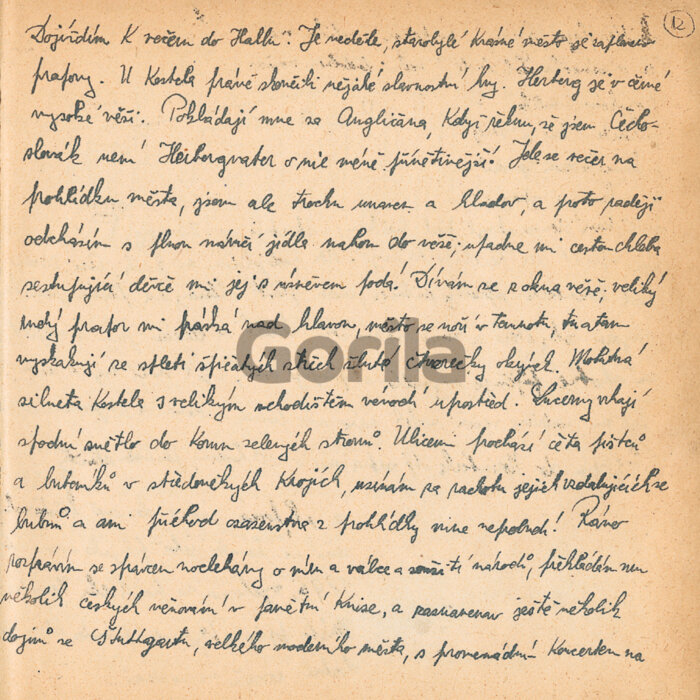 12
Dojíždím k večeru do Hallu. Je neděle, starobylé krásné město je zaplaveno
prapory. U kostela právě skončili nějaké slavnostní hry. Herberg je v černé
vysoké věži. Pokládají mne za Angličana, když řeknu, že jsem Čecho-
slovák není Herbergvater o nic méně přívětivější! Jde se večer na
prohlídku města, jsem ale trochu unaven a hladov, a proto raději
odcházím s plnou náručí jídla nahoru do věže; upadne mi cestou chleba
sestupující děvče mi jej s úsměvem podá! Dívám se z okna věže, veliký
rudý prapor mi práská nad hlavou, město se noří v temnotu, tu a tam
vyskakují ze spleti špičatých střech žluté čtverečky okýnek. Mohutná
silueta kostela s velikým schodištěm vévodí uprostřed. Lucerny vrhají
spodní světlo do korun zelených stromů. Ulicemi pochází četa pištců
a bubeníků v středověkých krojích, usínám za rachotu jejich vzdalujících se
bubnů a ani příchod z prohlídky mne neprobudí! Ráno
rozprávím se správcem noclehárny o míru a válce a soužití národů, překládám mu
několik českých věnování v pamětní knize, a zaznamenav ještě několik
dojmů ze Stuttgartu, velkého moderního města, s promenádním koncertem na
Gorila